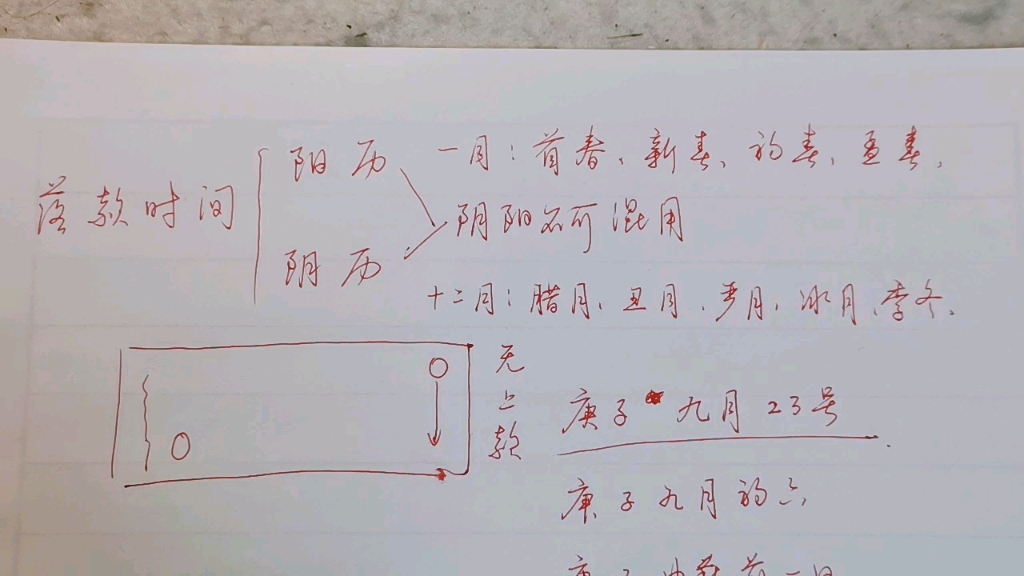 落款时间
阳历
阴历
一月：首春、新春、初春、孟春、
阴阳不可混用
十二月：腊月、丑月、岁月、冰月、季冬、
无上款
庚子 九月 23号
庚子九月初六
庚子